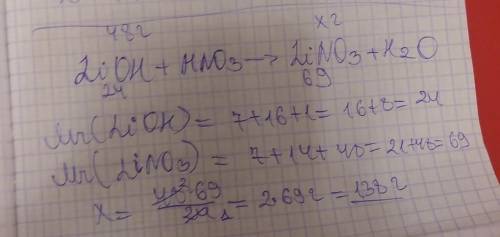 48г xг
LiOH + HNO3 → LiNO3 + H2O
24 69
Mr(LiOH) = 7+16+1 = 16+8 = 24
Mr(LiNO3) = 7+14+48 = 21+48 = 69
x = 48² · 69 / 24 1 = 2·69г = 138г